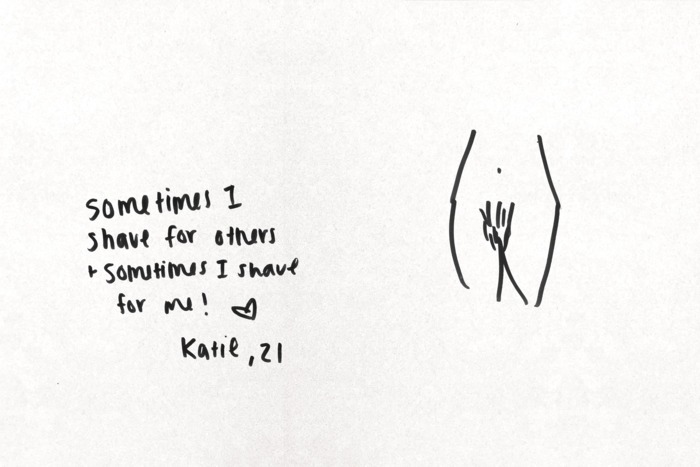 sometimes I
shave for others
+ sometimes I shave
for me! ♡
Katie, 21